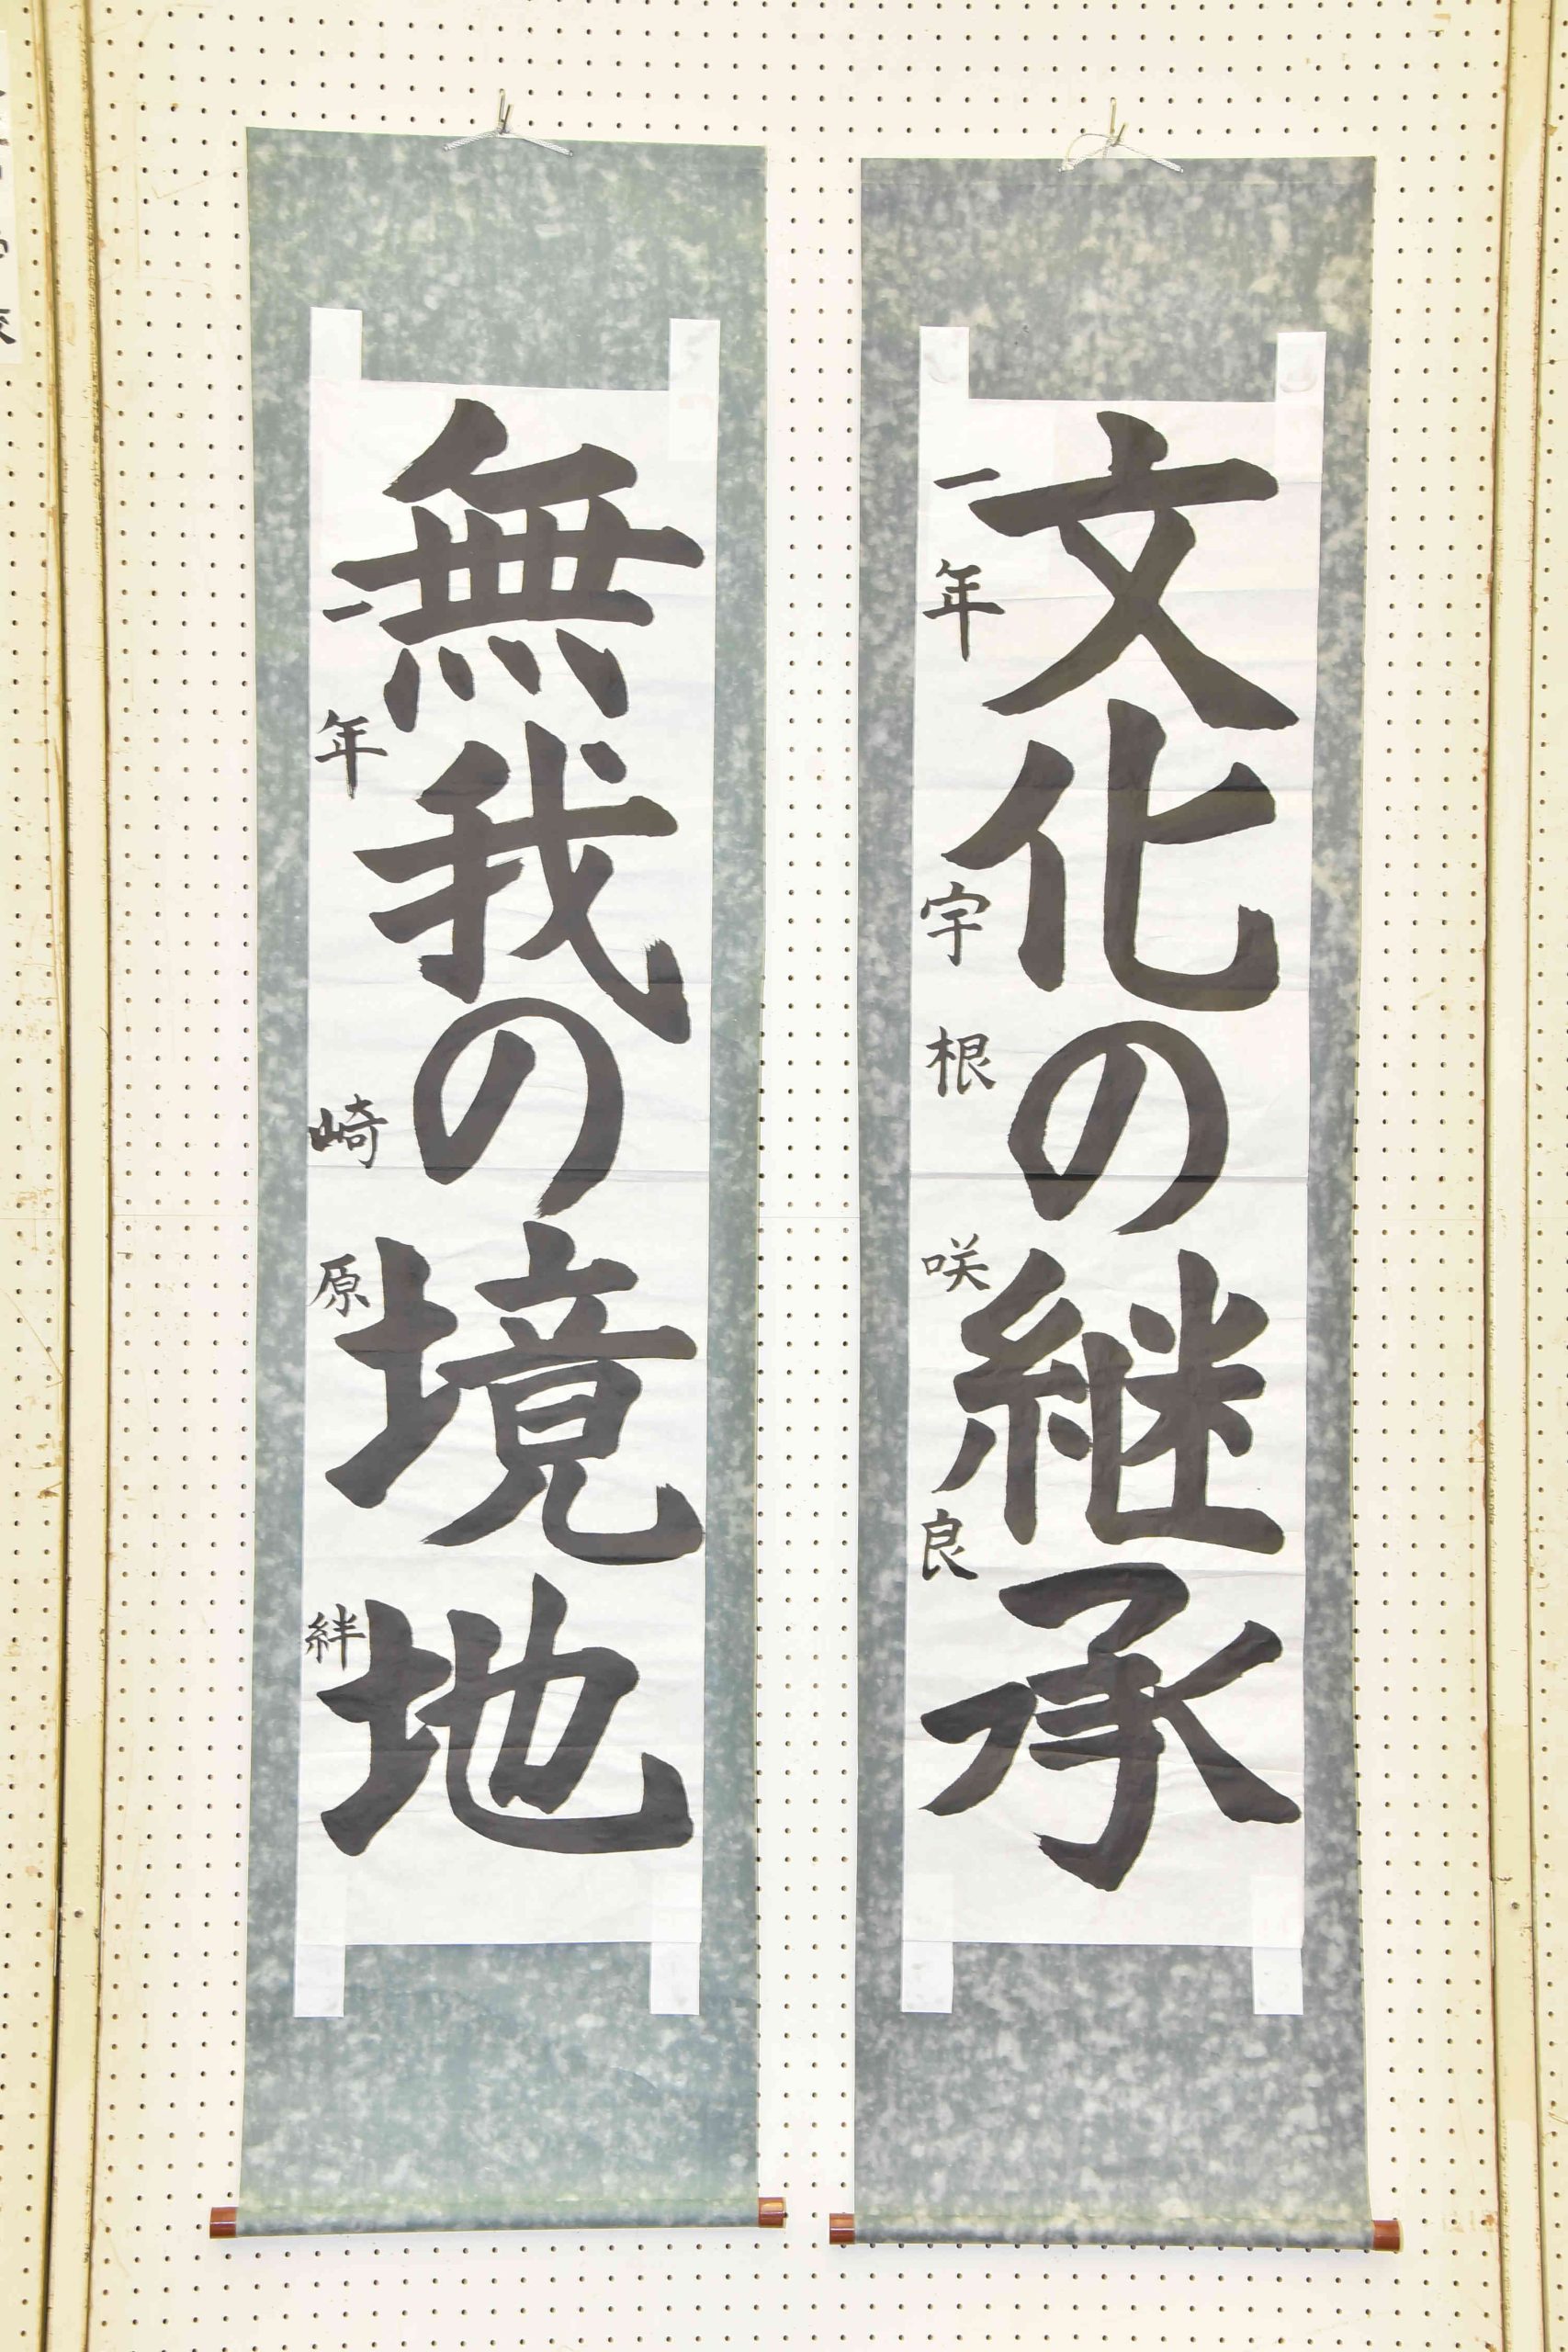 文化の継承
一年 宇根 咲良
無我の境地
一年 崎原 絆